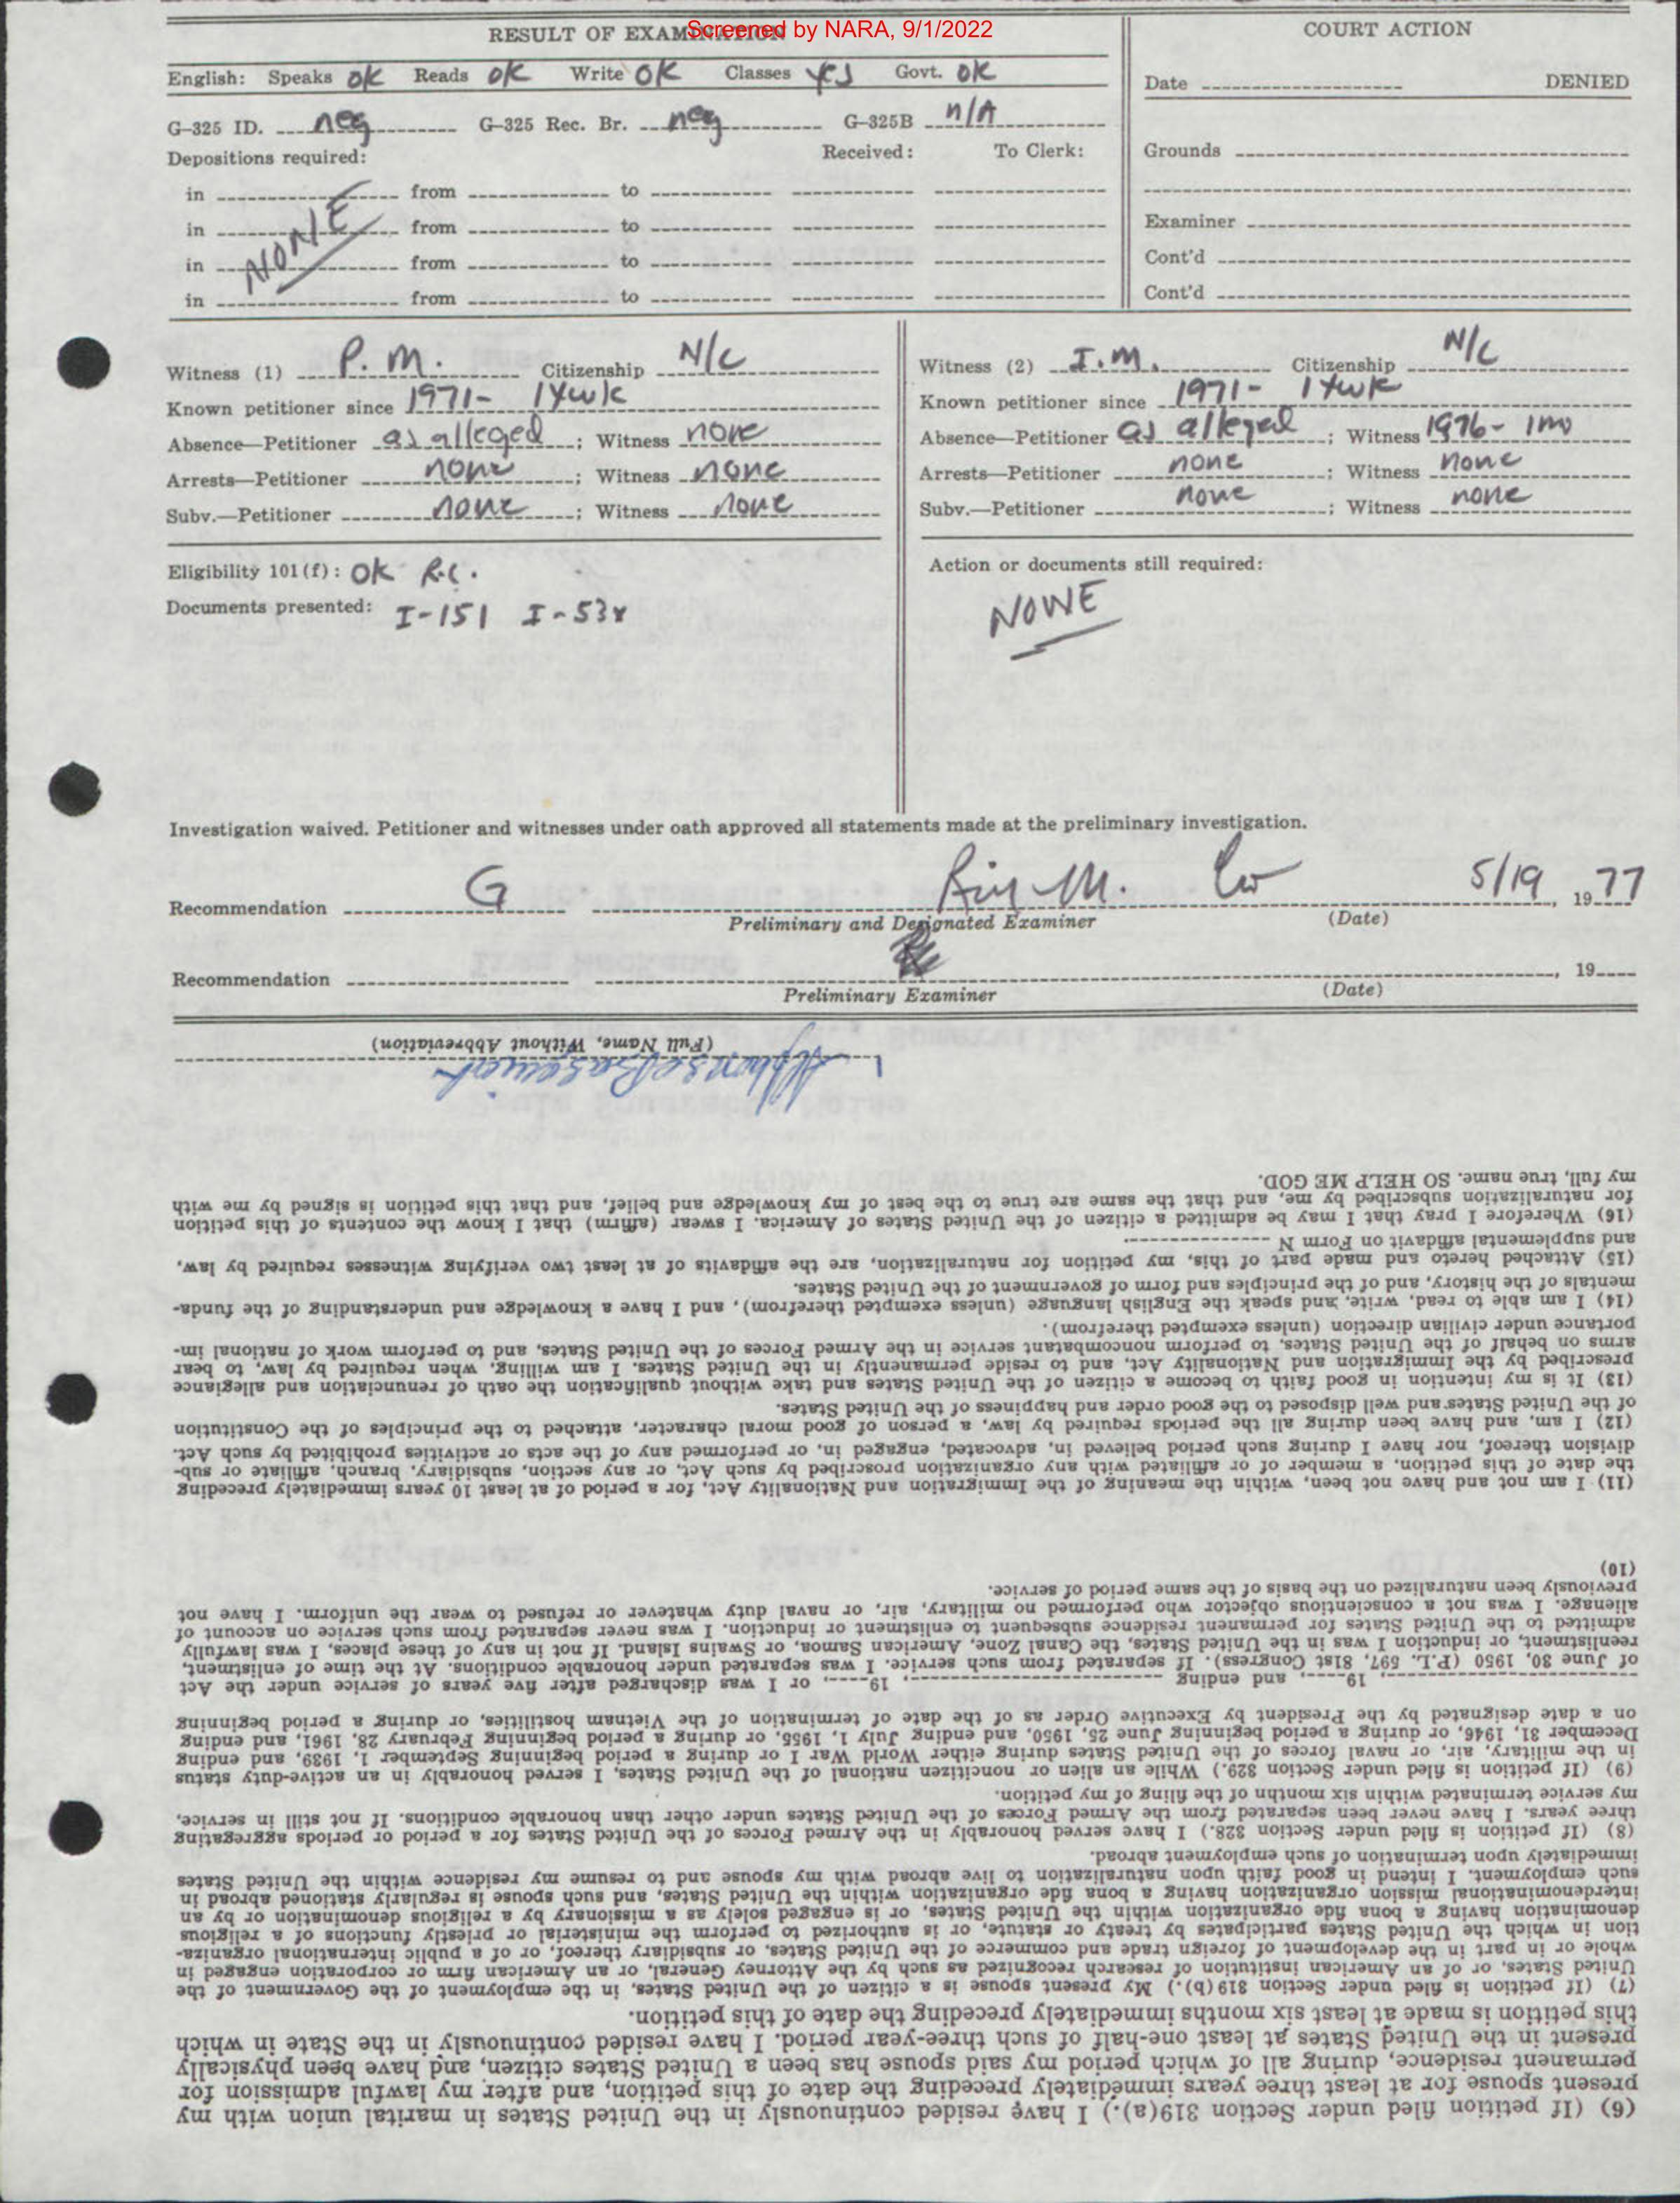 Screened by NARA, 9/1/2022
RESULT OF EXAMINATION
English: Speaks ok Reads ok Write OK Classes yes Govt. OK
G-325 ID. neg G-325 Rec. Br. neg G-325B n/A
Depositions required: Received: To Clerk:
in from to
in from to
in from to
in from to
NONE
COURT ACTION
Date DENIED
Grounds
Examiner
Cont'd
Cont'd
Witness (1) P. M. Citizenship N/C
Known petitioner since 1971- 1Xwk
Absence—Petitioner as alleged; Witness none
Arrests—Petitioner none; Witness none
Subv.—Petitioner none; Witness none
Eligibility 101(f): OK R.C.
Documents presented: I-151 I-53
Witness (2) I.M. Citizenship N/C
Known petitioner since 1971- 1Xwk
Absence—Petitioner as alleged; Witness 1976- 1mo
Arrests—Petitioner none; Witness none
Subv.—Petitioner none; Witness none
Action or documents still required:
NONE
Investigation waived. Petitioner and witnesses under oath approved all statements made at the preliminary investigation.
Recommendation G M. 5/19, 1977
Preliminary and Designated Examiner (Date)
Recommendation , 19
Preliminary Examiner (Date)
(6) (If petition filed under Section 319(a).) I have resided continuously in the United States in marital union with my
present spouse for at least three years immediately preceding the date of this petition, and after my lawful admission for
permanent residence, during all of which period my said spouse has been a United States citizen, and have been physically
present in the United States at least one-half of such three-year period. I have resided continuously in the State in which
this petition is made at least six months immediately preceding the date of this petition.
(7) (If petition is filed under Section 319(b).) My present spouse is a citizen of the United States, in the employment of the Government of the
United States, or of an American institution of research recognized as such by the Attorney General, or an American firm or corporation engaged in
whole or in part in the development of foreign trade and commerce of the United States, or subsidiary thereof, or of a public international organiza-
tion in which the United States participates by treaty or statute, or is authorized to perform the ministerial or priestly functions of a religious
denomination having a bona fide organization within the United States, or is engaged solely as a missionary by a religious denomination or by an
interdenominational mission organization having a bona fide organization within the United States, and such spouse is regularly stationed abroad in
such employment. I intend in good faith upon naturalization to live abroad with my spouse and to resume my residence within the United States
immediately upon termination of such employment abroad.
(8) (If petition is filed under Section 328.) I have served honorably in the Armed Forces of the United States for a period or periods aggregating
three years. I have never been separated from the Armed Forces of the United States under other than honorable conditions. If not still in service,
my service terminated within six months of the filing of my petition.
(9) (If petition is filed under Section 329.) While an alien or noncitizen national of the United States, I served honorably in an active-duty status
in the military, air, or naval forces of the United States during either World War I or during a period beginning September 1, 1939, and ending
December 31, 1946, or during a period beginning June 25, 1950, and ending July 1, 1955, or during a period beginning February 28, 1961, and ending
on a date designated by the President by Executive Order as of the date of termination of the Vietnam hostilities, or during a period beginning
19, and ending , 19, or I was discharged after five years of service under the Act
of June 30, 1950 (P.L. 597, 81st Congress). If separated from such service. I was separated under honorable conditions. At the time of enlistment,
reenlistment, or induction I was in the United States, the Canal Zone, American Samoa, or Swains Island. If not in any of these places, I was lawfully
admitted to the United States for permanent residence subsequent to enlistment or induction. I was never separated from such service on account of
alienage. I was not a conscientious objector who performed no military, air, or naval duty whatever or refused to wear the uniform. I have not
previously been naturalized on the basis of the same period of service.
(10)
(11) I am not and have not been, within the meaning of the Immigration and Nationality Act, for a period of at least 10 years immediately preceding
the date of this petition, a member of or affiliated with any organization proscribed by such Act, or any section, subsidiary, branch, affiliate or sub-
division thereof, nor have I during such period believed in, advocated, engaged in, or performed any of the acts or activities prohibited by such Act.
(12) I am, and have been during all the periods required by law, a person of good moral character, attached to the principles of the Constitution
of the United States and well disposed to the good order and happiness of the United States.
(13) It is my intention in good faith to become a citizen of the United States and take without qualification the oath of renunciation and allegiance
prescribed by the Immigration and Nationality Act, and to reside permanently in the United States. I am willing, when required by law, to bear
arms on behalf of the United States, to perform noncombatant service in the Armed Forces of the United States, and to perform work of national im-
portance under civilian direction (unless exempted therefrom).
(14) I am able to read, write, and speak the English language (unless exempted therefrom), and I have a knowledge and understanding of the funda-
mentals of the history, and of the principles and form of government of the United States.
(15) Attached hereto and made part of this, my petition for naturalization, are the affidavits of at least two verifying witnesses required by law,
and supplemental affidavit on Form N
(16) Wherefore I pray that I may be admitted a citizen of the United States of America. I swear (affirm) that I know the contents of this petition
for naturalization subscribed by me, and that the same are true to the best of my knowledge and belief, and that this petition is signed by me with
my full, true name. SO HELP ME GOD.
Alphonse
(Full Name, Without Abbreviation)